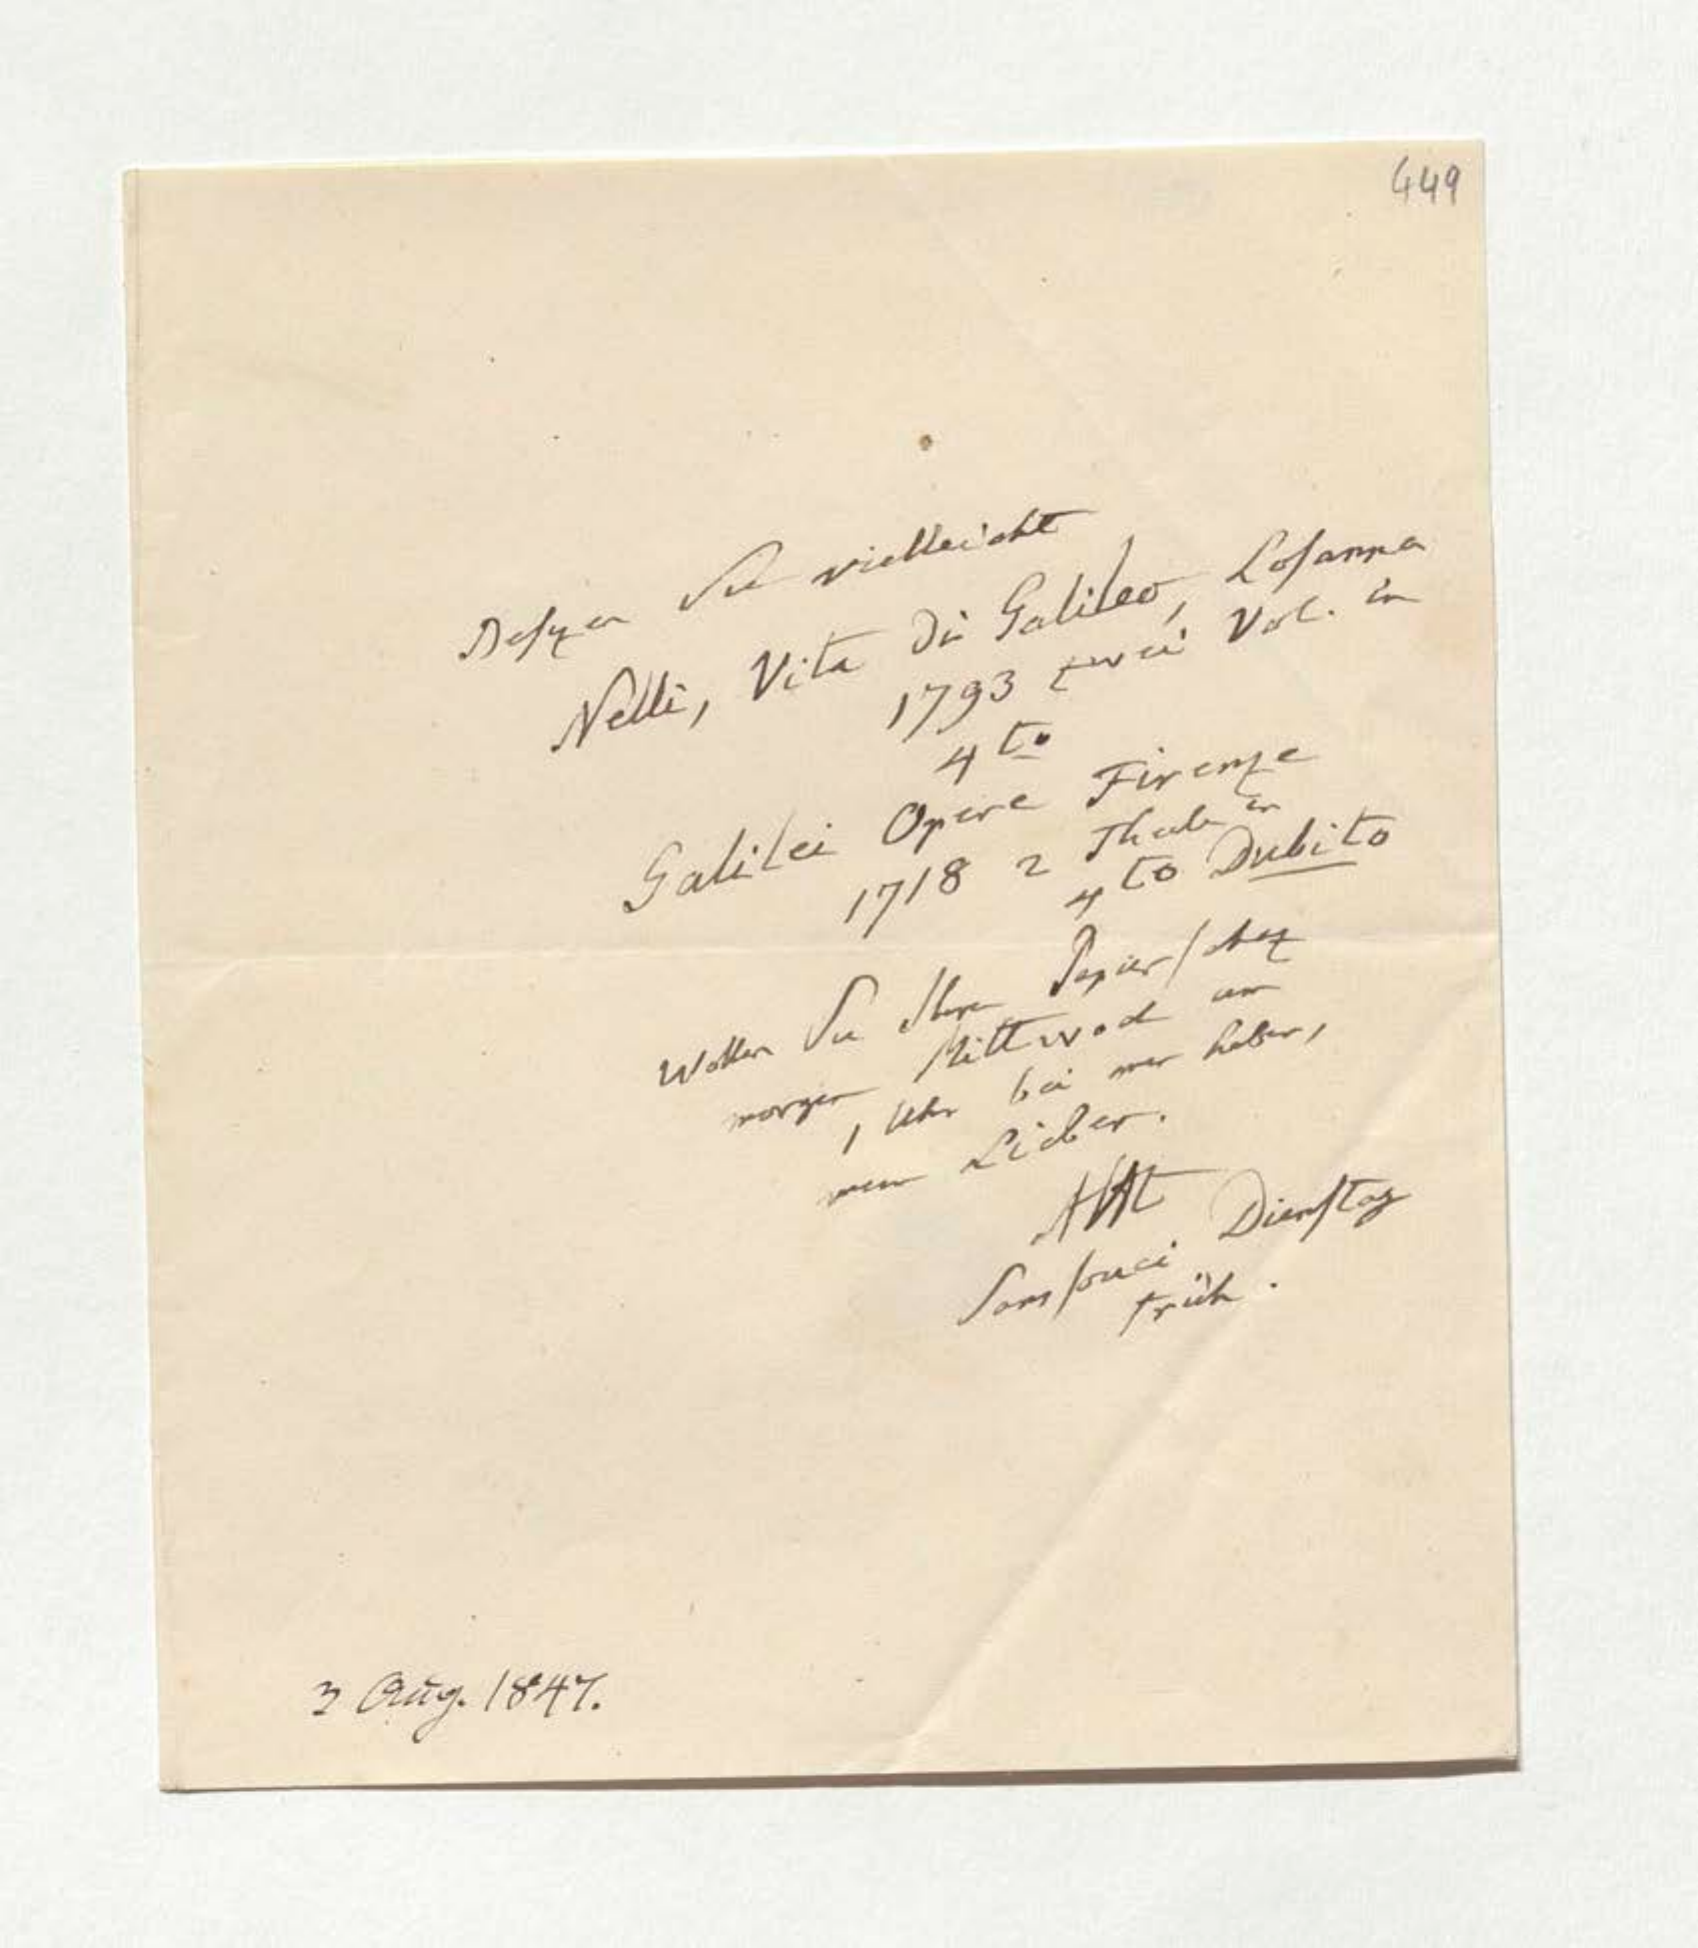 449
Besizen Sie vielleicht
Nelli, Vita di Galileo, Losanna
1793 zwei Vol. in
4to
Galilei Opere Firenze
1718 2 Theile in
4to Dubito
Wollen Sie Ihren Papierschaz
morgen Mittwoch um
1 Uhr bei mir haben,
mein Lieber.
AHt
Sanssouci Dienstag
früh.
3 Aug. 1847.